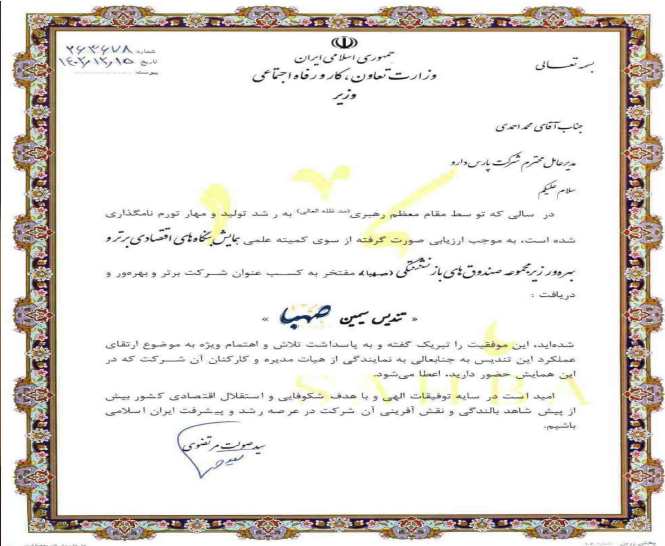 بسمه تعالی
جمهوری اسلامی ایران
وزارت تعاون، کار و رفاه اجتماعی
وزیر
شماره: ۲۶۳۶۷۸
تاریخ: ۱۴۰۲/۱۲/۱۵
پیوست:
جناب آقای محمد احمدی
مدیرعامل محترم شرکت پارس دارو
سلام علیکم
در سالی که توسط مقام معظم رهبری(مد ظله العالی) به رشد تولید و مهار تورم نامگذاری
شده است، به موجب ارزیابی صورت گرفته از سوی کمیته علمی همایش بنگاه‌های اقتصادی برتر و
بهره‌ور زیرمجموعه صندوق‌های بازنشستگی (صهبا)، مفتخر به کسب عنوان شرکت برتر و بهره‌ور و
دریافت :
« تندیس سیمین صهبا »
شده‌اید. این موفقیت را تبریک گفته و به پاسداشت تلاش و اهتمام ویژه به موضوع ارتقای
عملکرد این تندیس به جنابعالی به نمایندگی از هیات مدیره و کارکنان آن شرکت که در
این همایش حضور دارید، اعطا می‌شود.
امید است در سایه توفیقات الهی و با هدف شکوفایی و استقلال اقتصادی کشور بیش
از پیش شاهد بالندگی و نقش آفرینی آن شرکت در عرصه رشد و پیشرفت ایران اسلامی
باشیم.
سید صولت مرتضوی
SAHBA